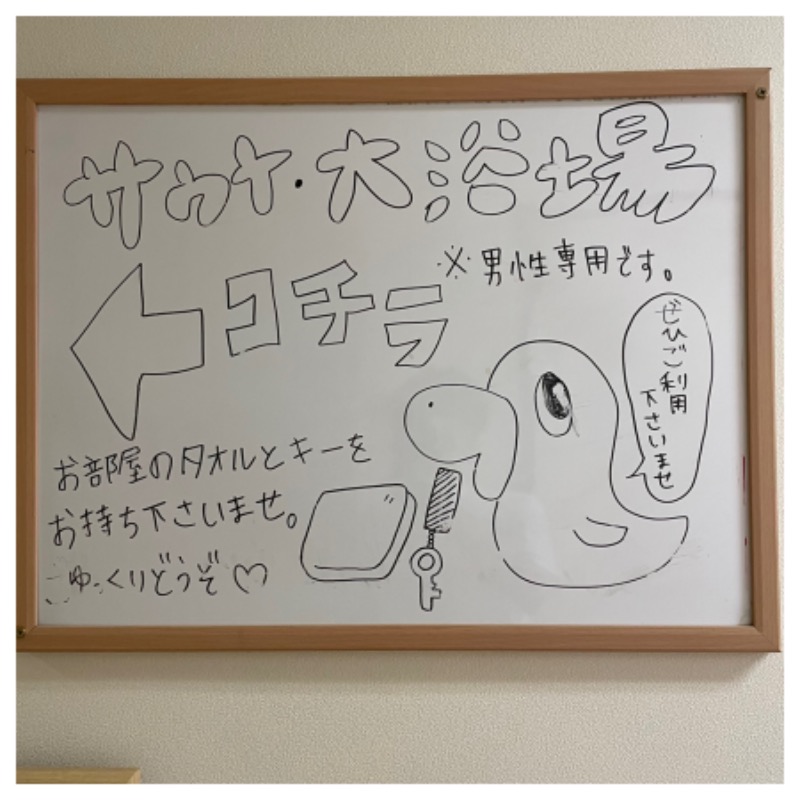 サウナ・大浴場
※男性専用です。
コチラ
ぜひご利用
下さいませ
お部屋のタオルとキーを
お持ち下さいませ。
ごゆっくりどうぞ♡